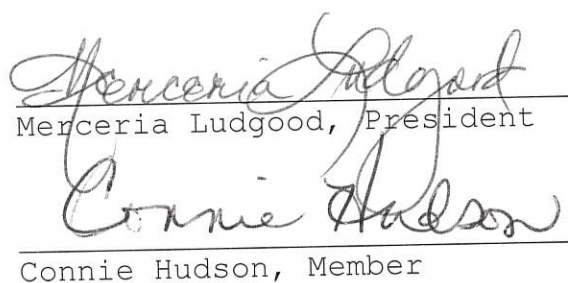 Merceria Ludgood
Merceria Ludgood, President
Connie Hudson
Connie Hudson, Member